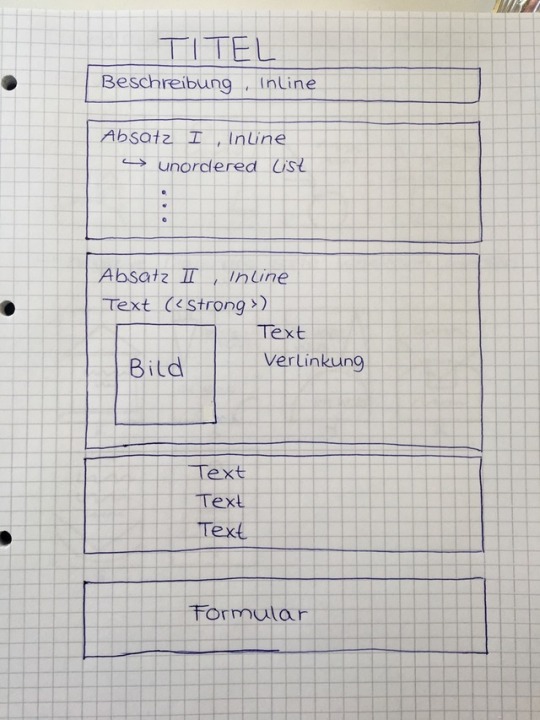 TITEL
Beschreibung , Inline
Absatz I , Inline
↪ unordered List
Absatz II , Inline
Text (<strong>)
Text
Bild
Verlinkung
Text
Text
Text
Formular